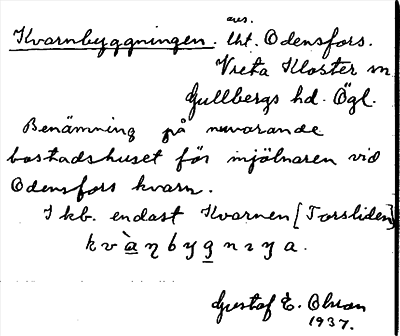 Kvarnbyggningen. avs. lht. Odensfors.
Vreta Kloster sn
Gullbergs hd. Ögl.
Benämning på nuvarande
bostadshuset för mjölnaren vid
Odensfors kvarn.
I kb. endast Kvarnen [Torsliden]
Gustaf E. Olsson
1937.